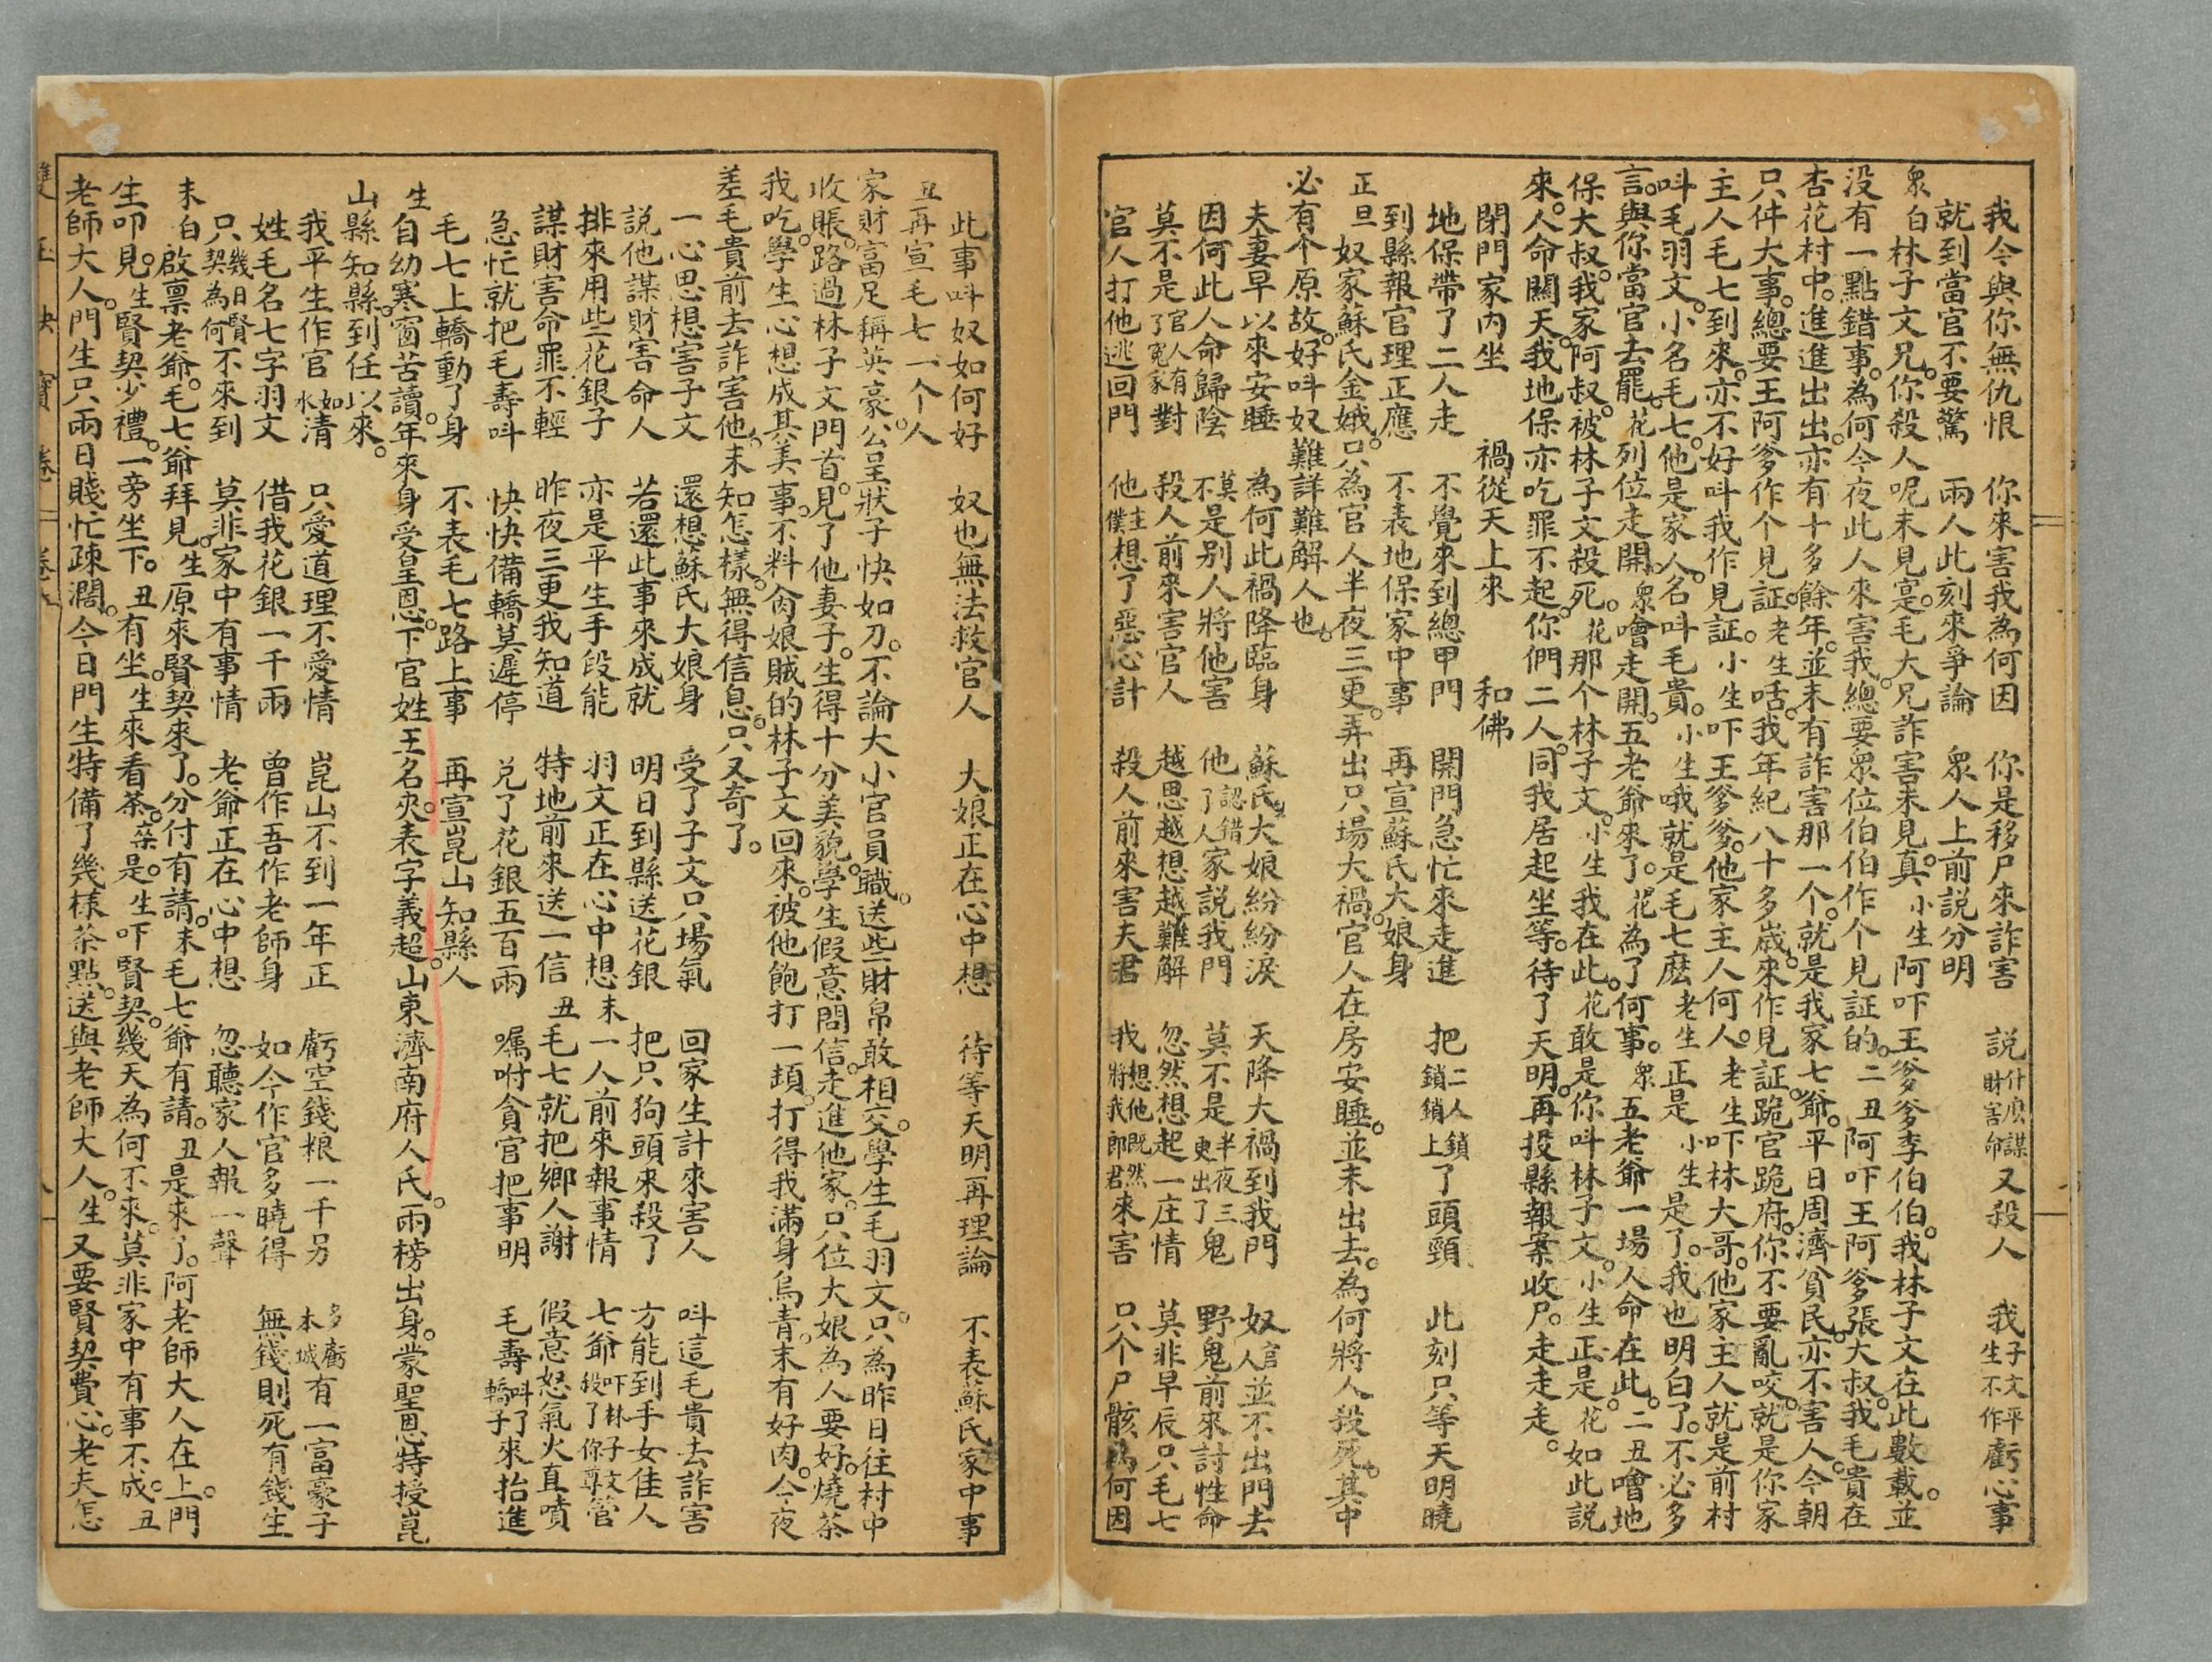 我今與你無仇恨　你來害我為何因　你是移尸來詐害　說什麽謀財害命又殺人　我子文平生不作虧心事
就到當官不要驚　兩人此刻來爭論　眾人上前說分明
眾白林子文兄。你殺人呢未見寔。毛大兄詐害未見真。小生阿吓王爹爹李伯伯。我林子文在此數載。並
没有一點錯事。為何今夜此人來害我。總要眾位伯伯作个見証的。二丑阿吓王阿爹張大叔。我毛貴在
杏花村中。進進出出。亦有十多餘年。並未有詐害那一个。就是我家七爺。平日周濟貧民。亦不害人。今朝
只件大事。總要王阿爹作个見証。老生咭。我年紀八十多歲。來作見証。跪官跪府。你不要亂咬。就是你家
主人毛七到來。亦不好呌我作見証。小生吓王爹爹。他家主人何人。老生吓林大哥。他家主人就是前村
呌毛羽文。小名毛七。他是家人。名呌毛貴。小生哦就是毛七麽老生正是小生是了。我也明白了。不必多
言。與你當官去罷。花列位走開。眾噲走開。五老爺來了。花為了何事。眾五老爺一場人命在此。二丑噲地
保大叔。我家阿叔。被林子文殺死。花那个林子文。小生我在此。花敢是你呌林子文。小生正是。花如此說
來。人命關天。我地保亦吃罪不起。你們二人。同我居起坐等。待了天明。再投縣報案收尸。走走走。
閉門家內坐　禍從天上來　和佛
地保帶了二人走　不覺來到總甲門　開門急忙來走進　把二人鎖鎖鎖上了頭頸　此刻只等天明曉
到縣報官理正應　不表地保家中事　再宣蘇氏大娘身
正旦奴家蘇氏金娥。只為官人半夜三更。弄出只塲大禍。官人在房安睡。並未出去。為何將人殺死。其中
必有个原故。好呌奴難詳難解人也。
夫妻早以來安睡　為何此禍降臨身　蘇氏大娘紛紛淚　天降大禍到我門　奴官人並不出門去
因何此人命歸陰　莫不是别人將他害　他認錯了人家說我門　莫不是半夜三更出了鬼　野鬼前來討性命
莫不是官人有了冤家對　殺人前來害官人　越思越想越難解　忽然想起一庄情　莫非早辰只毛七
官人打他逃回門　他主僕想了惡心計　殺人前來害夫君　我想他既然將我郎君來害　只个尸骸為何因
此事呌奴如何好　奴也無法救官人　大娘正在心中想　待等天明再理論　不表蘇氏家中事
丑再宣毛七一个人
家財富足稱英豪。公呈狀子快如刀。不論大小官員職。送些財帛敢相交。學生毛羽文。只為昨日往村中
收賬。路過林子文門首。見了他妻子。生得十分美貌。學生假意問信。走進他家。只位大娘為人要好。燒茶
我吃。學生心想成其美事。不料肏娘賊的林子文回來。被他飽打一頓。打得我滿身烏青。末有好肉。今夜
差毛貴前去詐害他。末知怎樣。無得信息。只又奇了。
一心思想害子文　還想蘇氏大娘身　受了子文只場氣　回家生計來害人　呌這毛貴去詐害
說他謀財害命人　若還此事來成就　明日到縣送花銀　把只狗頭來殺了　方能到手女佳人
排來用些花銀子　亦是平生手段能　羽文正在心中想　末一人前來報事情　七爺吓林子文殺了你尊管
謀財害命罪不輕　昨夜三更我知道　特地前來送一信　丑毛七就把鄉人謝　假意怒氣火直噴
急忙就把毛壽呌　快快備轎莫遲停　兌了花銀五百兩　囑咐貪官把事明　毛壽呌了轎子來抬進
毛七上轎動了身　不表毛七路上事　再宣崑山知縣人
生自幼寒窗苦讀。年來身受皇恩。下官姓王名夾。表字義超。山東濟南府人氏。兩榜出身。蒙聖恩特授崑
山縣知縣。到任以來。
我平生作官如水清　只愛道理不愛情　崑山不到一年正　虧空錢粮一千另　多虧本城有一富豪子
姓毛名七字羽文　借我花銀一千兩　曾作吾作老師身　如今作官多曉得　無錢則死有錢生
只幾日賢契為何不來到　莫非家中有事情　老爺正在心中想　忽聽家人報一聲
末白啟稟老爺。毛七爺拜見。生原來賢契來了。分付有請。末毛七爺有請。丑是來了。阿老師大人在上。門
生叩見。生賢契少禮。一旁坐下。丑有坐。生來看茶。葉是。生吓賢契。幾天為何不來。莫非家中有事不成。丑
老師大人。門生只兩日賤忙疎濶。今日門生特備了幾樣茶點。送與老師大人。生又要賢契費心。老夫怎
雙玉玦寳卷